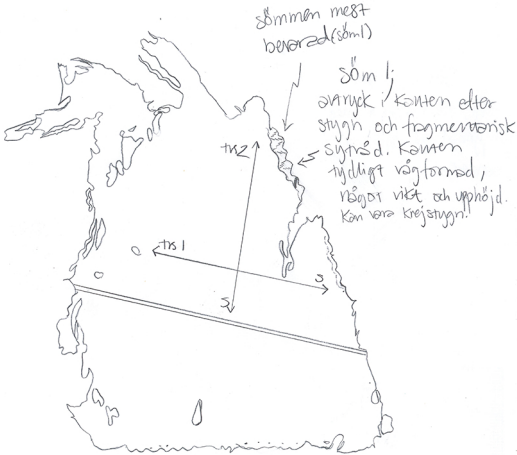 sömmen mest
bevarad (söm 1)
söm 1;
avtryck i kanten efter
stygn och fragmentarisk
sytråd. Kanten
tydligt vågformad,
något vikt och upphöjd.
Kan vara krejstygn.
trs2
trs1
s
s